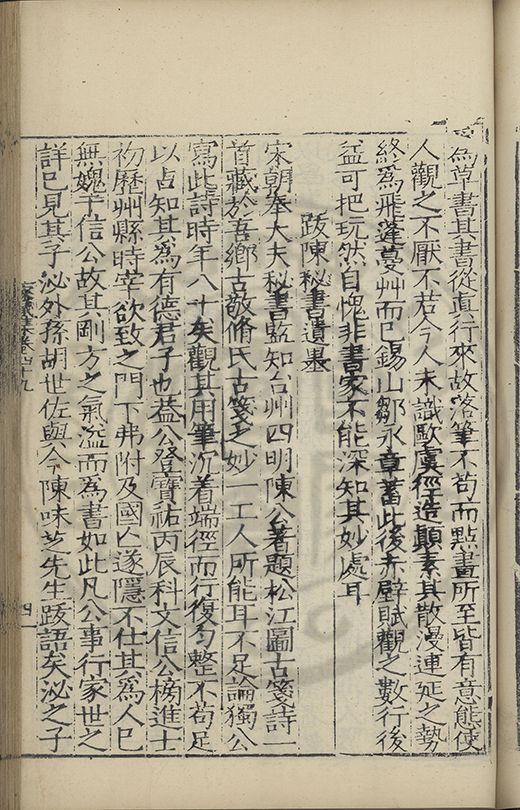 為草書其書從真行來故落筆不苟而點畫所至皆有意態使
人觀之不厭不若今人未識歐虞徑造顛素其散漫連延之勢
終為飛蓬蔓艸而已錫山鄒永章蓄此後赤壁賦觀之數行後
益可把玩然自愧非書家不能深知其妙處耳
跋陳秘書遺墨
宋朝奉大夫秘書監知台州四明陳公著題松江圖古箋詩一
首藏於吾鄉古敬脩氏古箋之妙一工人所能耳不足論獨公
寫此詩時年八十矣觀其用筆沉着端徑而行復勻整不苟足
以占知其為有德君子也蓋公登寶祐丙辰科文信公榜進士
初歷州縣時宰欲致之門下弗附及國亡遂隱不仕其為人已
無媿于信公故其剛方之氣溢而為書如此凡公事行家世之
詳已見其子泌外孫胡世佐與今陳味芝先生跋語矣泌之子
家藏集卷四十九
四